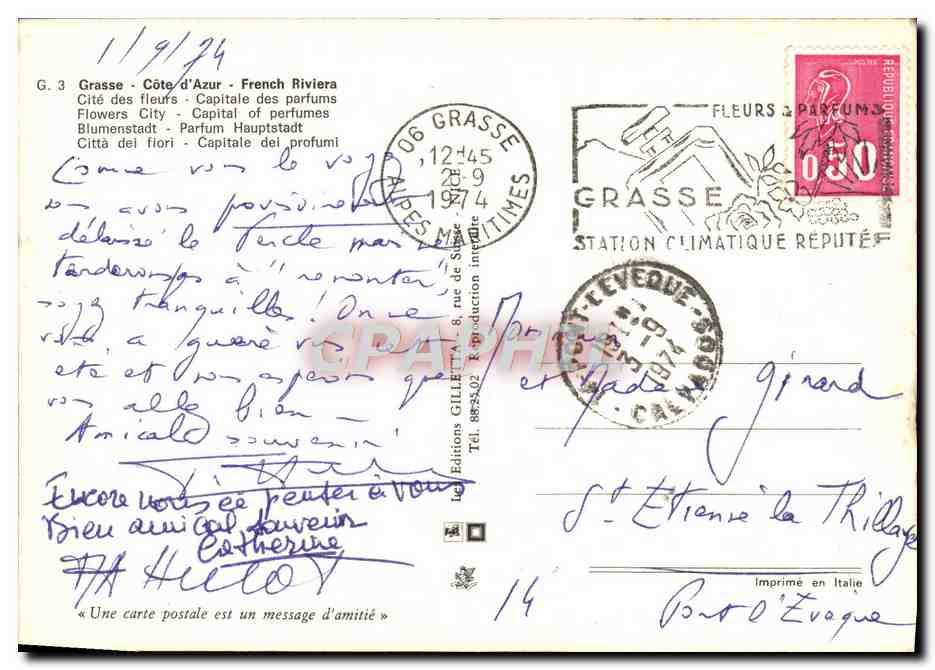 1/9/74
G. 3 Grasse - Côte d'Azur - French Riviera
Cité des fleurs - Capitale des parfums
Flowers City - Capital of perfumes
Blumenstadt - Parfum Hauptstadt
Città dei fiori - Capitale dei profumi
Comme vous le voyez
nous avons
délaissé le Perche mais ne
tarderons pas à "remonter"
soyez tranquilles! On ne
vous a guère vus cet
été et nous espérons que
vous allez bien -
Amical souvenir!
Encore nous à penser à vous
Bien amical souvenir
Catherine
Hulot
« Une carte postale est un message d'amitié »
Les Editions GILLETTA - 8, rue de Suisse - NICE
Tél. 88.25.02 Reproduction interdite
06 GRASSE
12H45
2-9
1974
ALPES MARITIMES
FLEURS & PARFUMS
GRASSE
STATION CLIMATIQUE RÉPUTÉE
REPUBLIQUE FRANCAISE
POSTES
0,50
PONT-L'EVEQUE
3-9
1974
CALVADOS
CPARPHIL
et Madame Girard
St Etienne la Thillaye
14 Pont l'Evêque
Imprimé en Italie